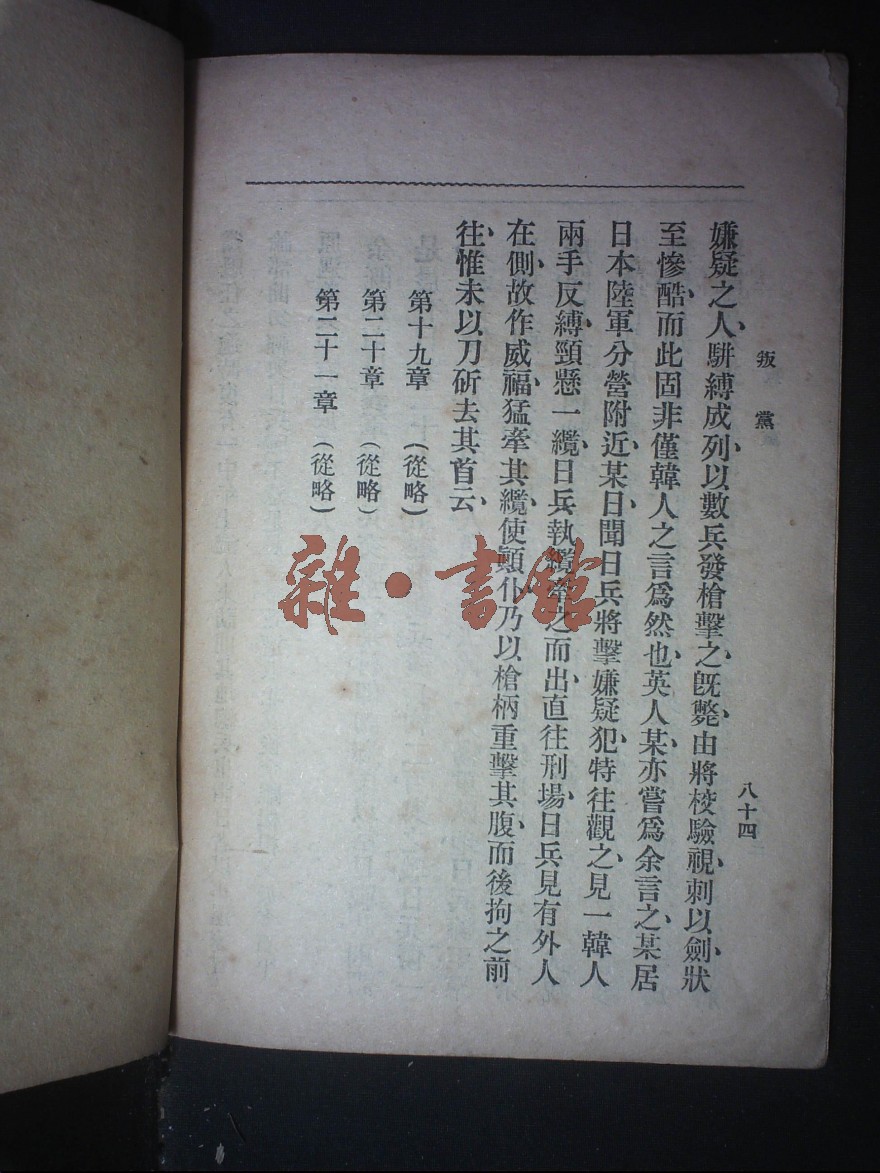 叛黨
八十四
嫌疑之人、駢縛成列、以數兵發槍擊之、旣斃、由將校驗視、刺以劍、狀
至慘酷、而此固非僅韓人之言爲然也、英人某、亦嘗爲余言之、某居
日本陸軍分營附近、某日聞日兵將擊嫌疑犯、特往觀之、見一韓人
兩手反縛、頸懸一纜、日兵執纜牽之而出、直往刑場、日兵見有外人
在側、故作威福、猛牽其纜、使顚仆、乃以槍柄重擊其腹、而後拘之前
往、惟未以刀斫去其首云、
第十九章　(從略)
第二十章　(從略)
第二十一章　(從略)
雜·書館